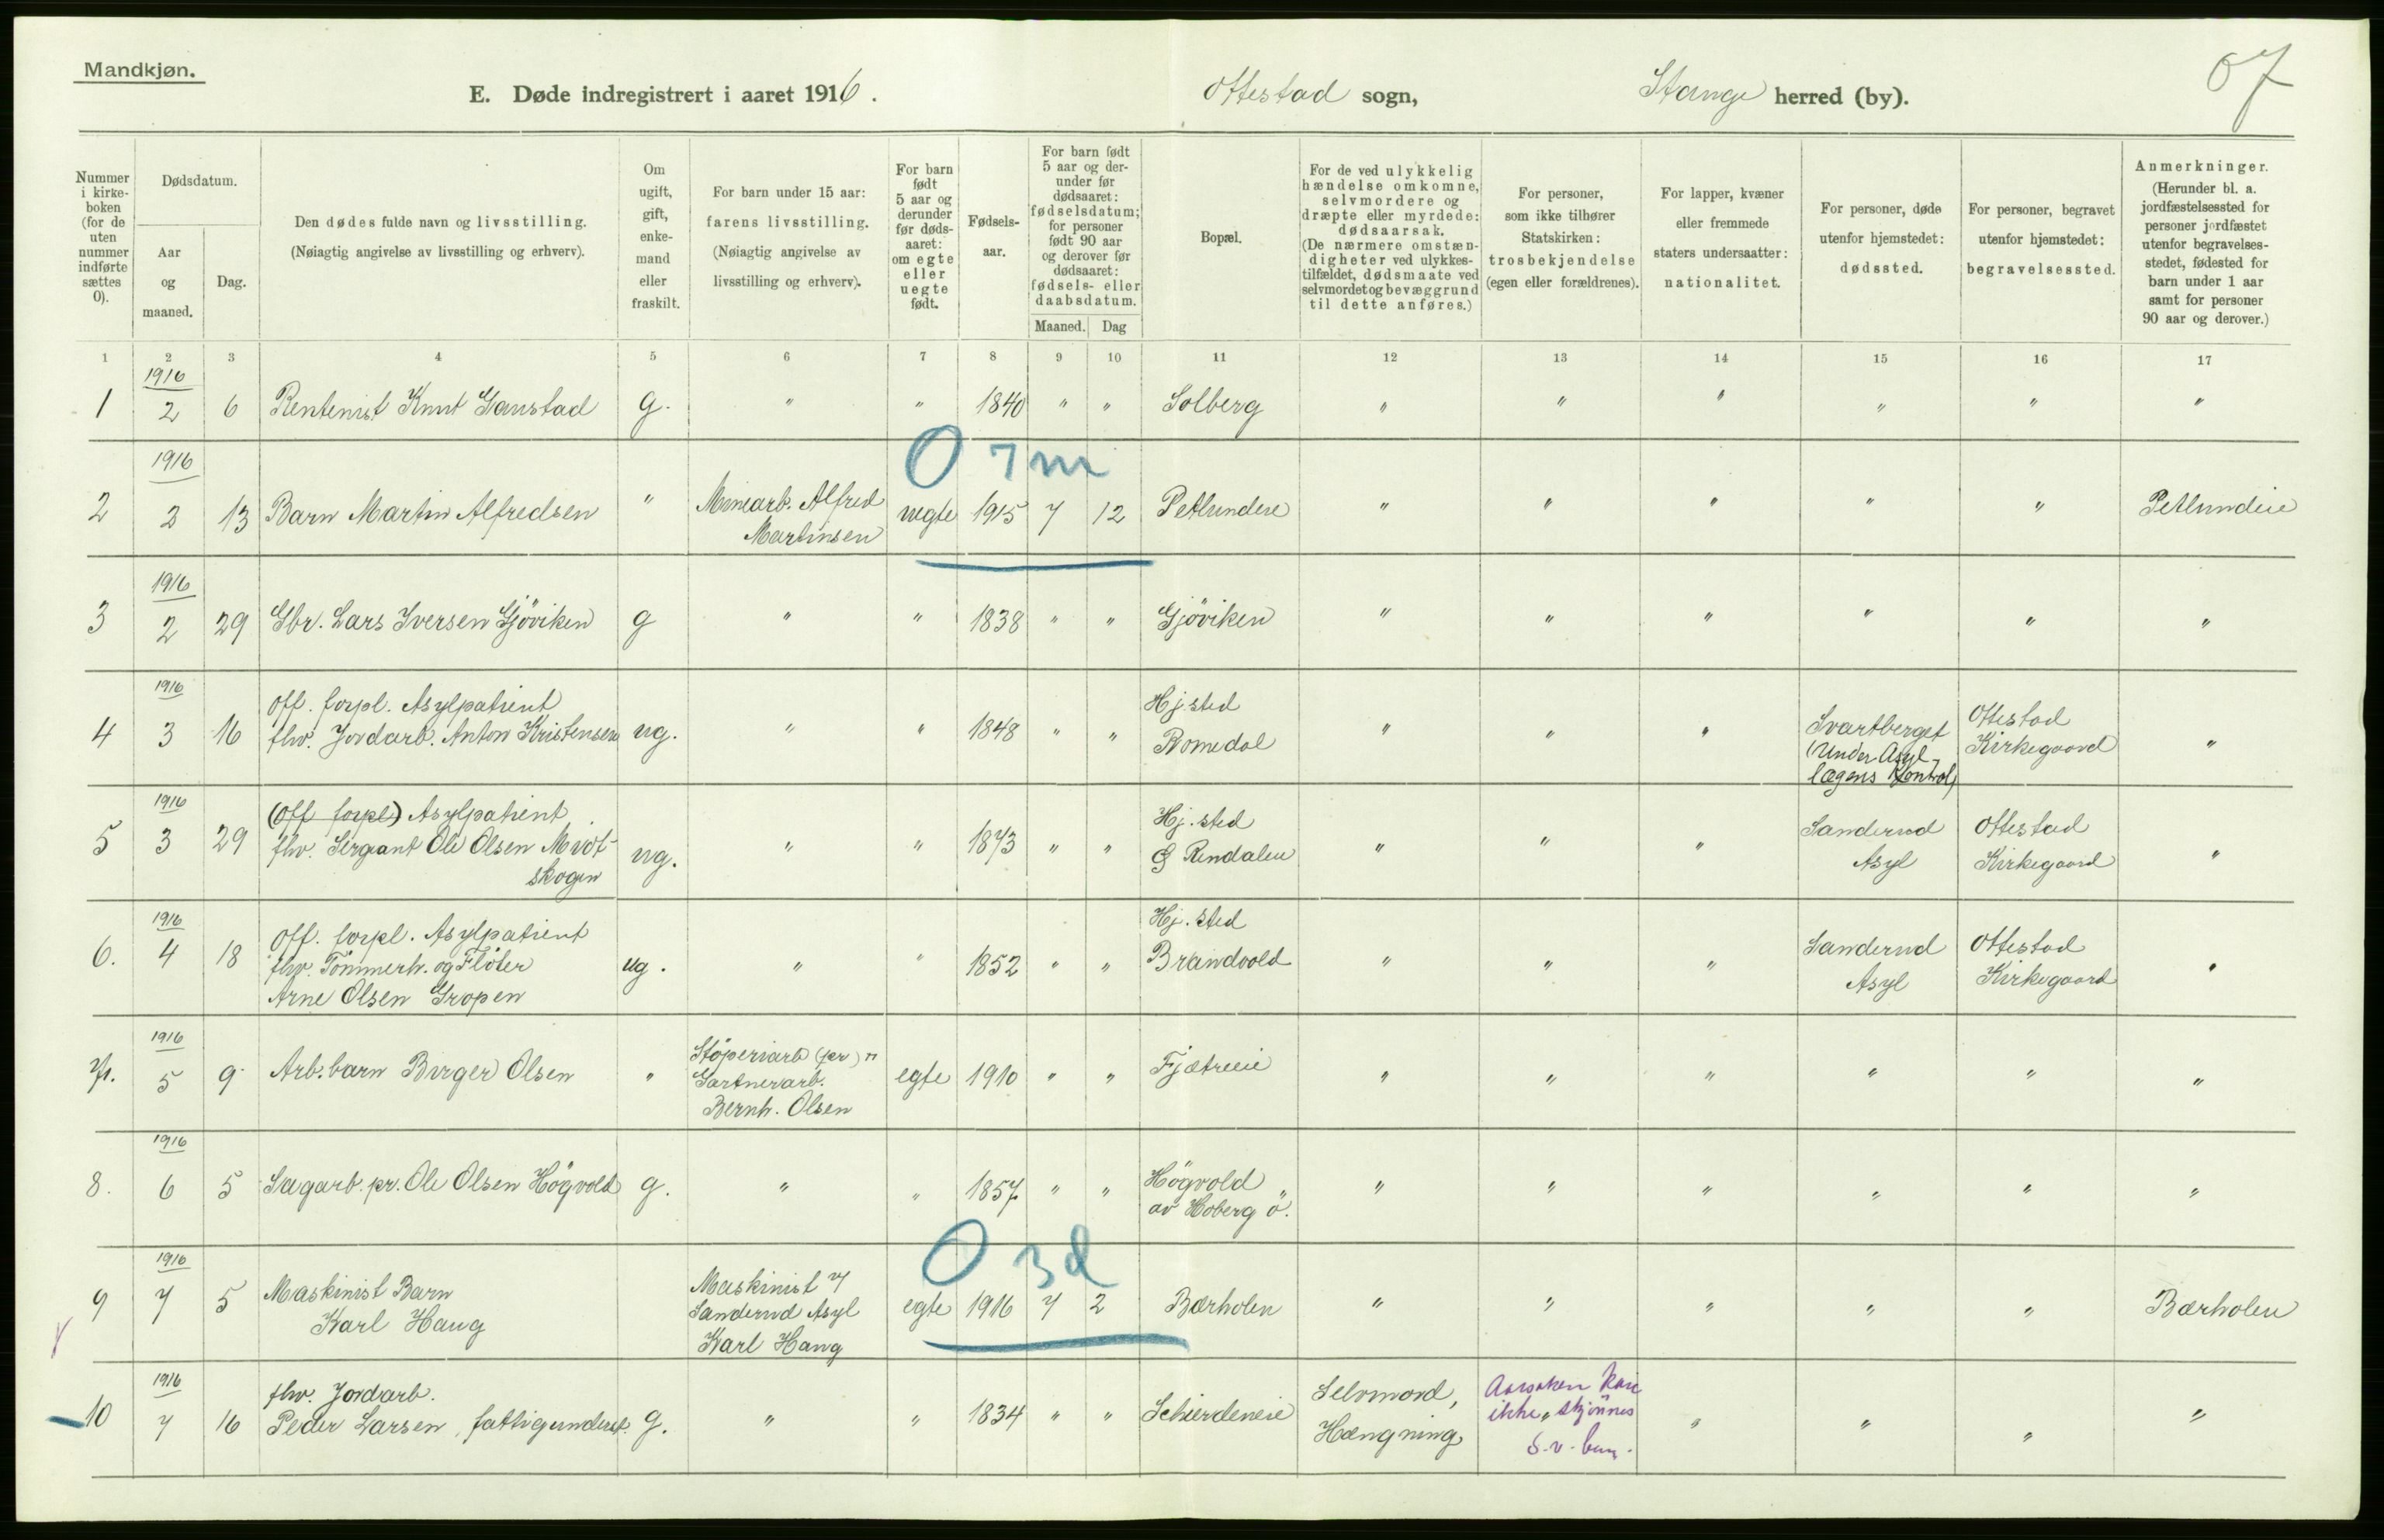 Mandkjøn.
E. Døde indregistrert i aaret 1916.
Ottestad sogn,
Stange herred (by).
07
Nummer i kirke-boken (for de uten nummer indførte sættes 0).
Dødsdatum.
Aar og maaned.
Dag.
Den dødes fulde navn og livsstilling.
(Nøiagtig angivelse av livsstilling og erhverv).
Om ugift, gift, enke-mand eller fraskilt.
For barn under 15 aar: farens livsstilling.
(Nøiagtig angivelse av livsstilling og erhverv).
For barn født 5 aar og derunder før døds-aaret: om egte eller uegte født.
Fødsels-aar.
For barn født 5 aar og der-under før dødsaaret: fødselsdatum; for personer født 90 aar og derover før dødsaaret: fødsels- eller daabsdatum.
Maaned. Dag
Bopæl.
For de ved ulykkelig hændelse omkomne, selvmordere og dræpte eller myrdede: dødsaarsak.
(De nærmere omstæn-digheter ved ulykkes-tilfældet, dødsmaate ved selvmordet og bevæggrund til dette anføres.)
For personer, som ikke tilhører Statskirken: trosbekjendelse (egen eller forældrenes).
For lapper, kvæner eller fremmede staters undersaatter: nationalitet.
For personer, døde utenfor hjemstedet: dødssted.
For personer, begravet utenfor hjemstedet: begravelsessted.
Anmerkninger.
(Herunder bl. a. jordfæstelsessted for personer jordfæstet utenfor begravelses-stedet, fødested for barn under 1 aar samt for personer 90 aar og derover.)
1 2 3 4 5 6 7 8 9 10 11 12 13 14 15 16 17
1916
1 2 6 Rentenist Knut Gaustad g. " " 1840 " " Solberg " " " " " "
0 7 m
1916
2 2 13 Barn Martin Alfredsen " Minearb. Alfred Martinsen uegte 1915 7 12 Petlundeie " " " " " Petlundeie
1916
3 2 29 Gbr. Lars Iversen Gjöviken g " " 1838 " " Gjöviken " " " " " "
1916
off. forpl. Asylpatient
4 3 16 fhv. Jordarb. Anton Kristensen ug. " " 1848 " " Hjsted Romedal " " " Svartberget (Under Asyl-lægens Kontrol) Ottestad Kirkegaard "
1916
(Off forpl) Asylpatient
5 3 29 fhv. Sergeant Ole Olsen Midt-skogen ug. " " 1873 " " Hj. sted Rendalen " " " Sanderud Asyl Ottestad Kirkegaard "
1916
Off. forpl. Asylpatient
6. 4 18 fhv. Tömmerh. og Flöter Arne Olsen Gropen ug. " " 1852 " " Hj. sted Brandvold " " " Sanderud Asyl Ottestad Kirkegaard "
1916
7. 5 9 Arb. barn Birger Olsen " Stöperiarb (pr) Gartnerarb. Bernh. Olsen egte 1910 " " Fjætreeie " " " " " "
1916
8. 6 5 Sagarb. pr. Ole Olsen Högvold g. " " 1857 " " Högvold av Hoberg ö. " " " " " "
0 3 d
1916
9 7 5 Maskinist Barn Karl Haug Maskinist v/ Sanderud Asyl Karl Haug egte 1916 7 2 Bærholen " " " " " Bærholen
1916
fhv. Jordarb.
10 7 16 Peder Larsen, fattigunderst. g. " " 1834 " " Schierdeneie Selvmord, Hængning Aarsaken kan ikke skjönnes S.v. " " " "